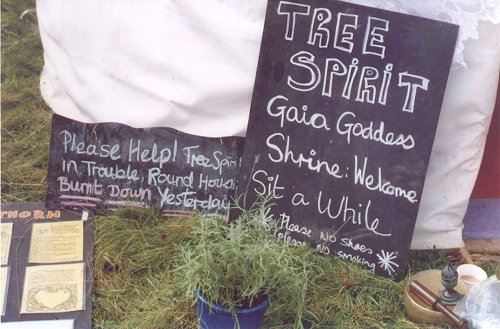 TREE
SPIRIT
Gaia Goddess
Shrine: Welcome
Sit a While
Please No shoes
Please no smoking
Please Help! Tree Spirit
in Trouble, Round House
Burnt Down Yesterday
THORN